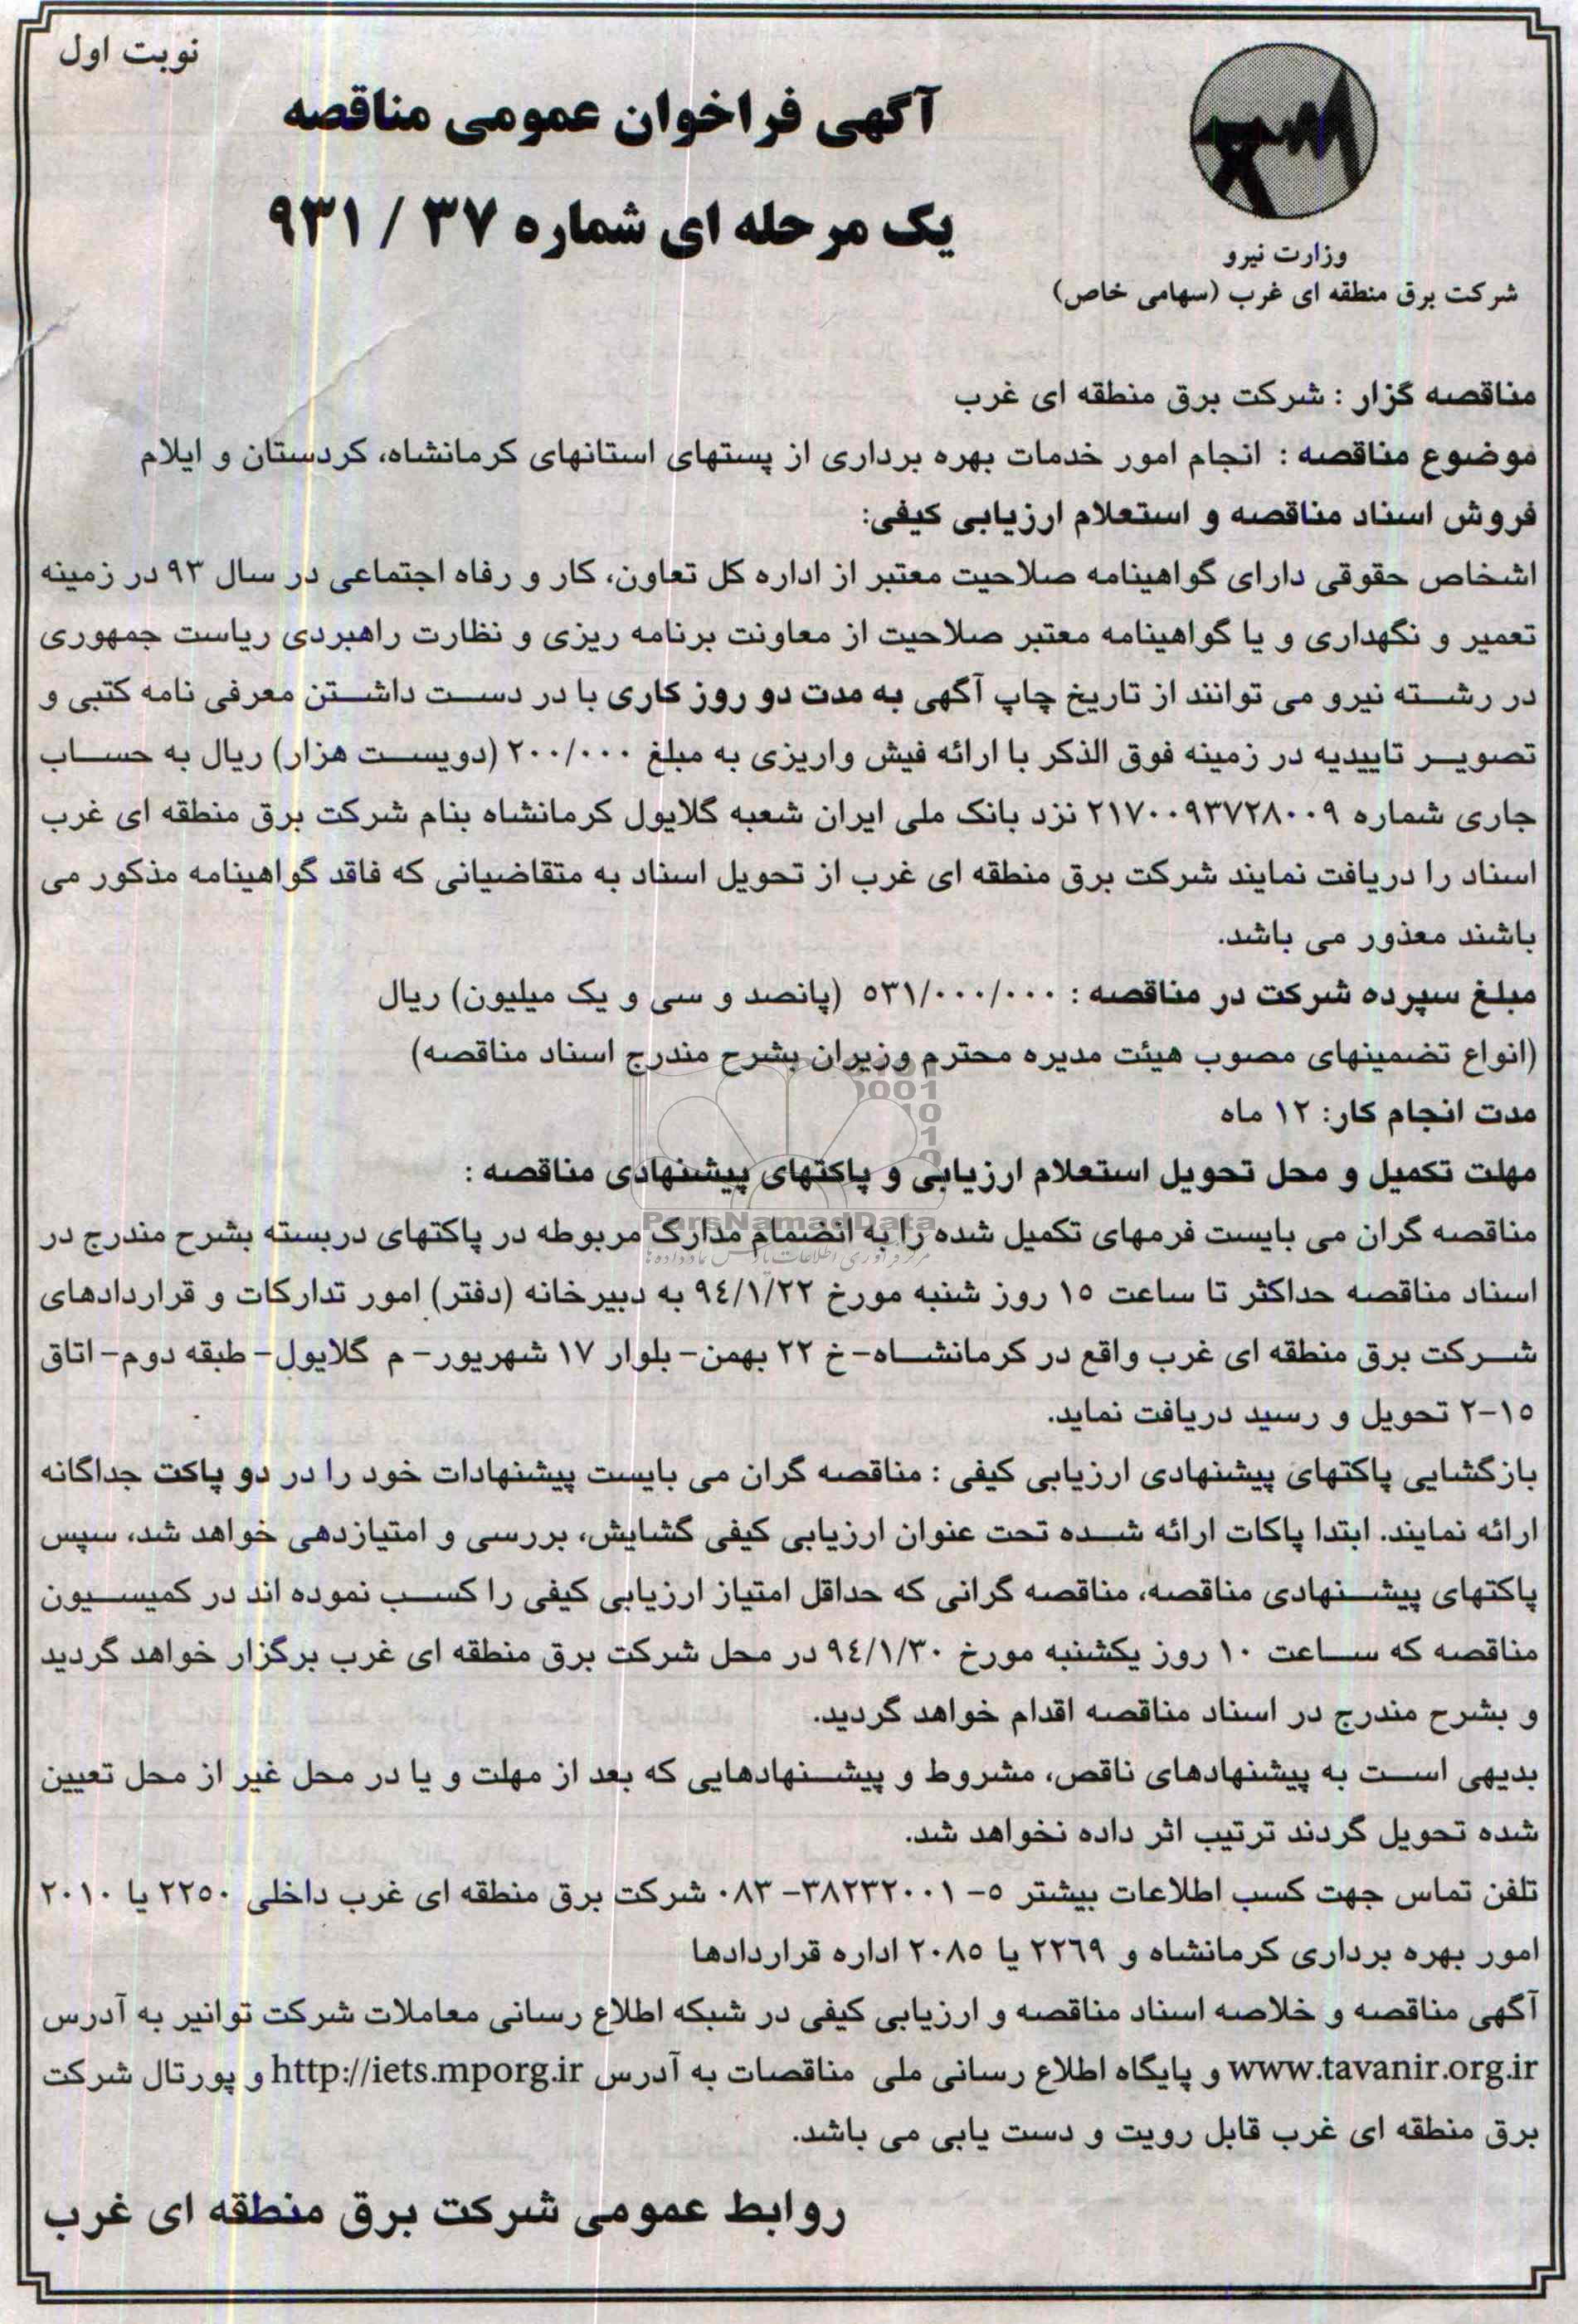 نوبت اول
آگهی فراخوان عمومی مناقصه
یک مرحله ای شماره ۳۷ / ۹۳۱
وزارت نیرو
شرکت برق منطقه ای غرب (سهامی خاص)
مناقصه گزار : شرکت برق منطقه ای غرب
موضوع مناقصه : انجام امور خدمات بهره برداری از پستهای استانهای کرمانشاه، کردستان و ایلام
فروش اسناد مناقصه و استعلام ارزیابی کیفی:
اشخاص حقوقی دارای گواهینامه صلاحیت معتبر از اداره کل تعاون، کار و رفاه اجتماعی در سال ۹۳ در زمینه
تعمیر و نگهداری و یا گواهینامه معتبر صلاحیت از معاونت برنامه ریزی و نظارت راهبردی ریاست جمهوری
در رشته نیرو می توانند از تاریخ چاپ آگهی به مدت دو روز کاری با در دست داشتن معرفی نامه کتبی و
تصویر تاییدیه در زمینه فوق الذکر با ارائه فیش واریزی به مبلغ ۲۰۰/۰۰۰ (دویست هزار) ریال به حساب
جاری شماره ۲۱۷۰۰۹۳۷۲۸۰۰۹ نزد بانک ملی ایران شعبه گلایول کرمانشاه بنام شرکت برق منطقه ای غرب
اسناد را دریافت نمایند شرکت برق منطقه ای غرب از تحویل اسناد به متقاضیانی که فاقد گواهینامه مذکور می
باشند معذور می باشد.
مبلغ سپرده شرکت در مناقصه : ۵۳۱/۰۰۰/۰۰۰ (پانصد و سی و یک میلیون) ریال
(انواع تضمینهای مصوب هیئت مدیره محترم وزیران بشرح مندرج اسناد مناقصه)
مدت انجام کار: ۱۲ ماه
مهلت تکمیل و محل تحویل استعلام ارزیابی و پاکتهای پیشنهادی مناقصه :
ParsNamadData
مناقصه گران می بایست فرمهای تکمیل شده را به انضمام مدارک مربوطه در پاکتهای دربسته بشرح مندرج در
اسناد مناقصه حداکثر تا ساعت ۱۵ روز شنبه مورخ ۹٤/۱/۲۲ به دبیرخانه (دفتر) امور تدارکات و قراردادهای
شرکت برق منطقه ای غرب واقع در کرمانشاه-خ ۲۲ بهمن- بلوار ۱۷ شهریور- م گلایول- طبقه دوم- اتاق
۲-۱۵ تحویل و رسید دریافت نماید.
بازگشایی پاکتهای پیشنهادی ارزیابی کیفی : مناقصه گران می بایست پیشنهادات خود را در دو پاکت جداگانه
ارائه نمایند. ابتدا پاکات ارائه شده تحت عنوان ارزیابی کیفی گشایش، بررسی و امتیازدهی خواهد شد، سپس
پاکتهای پیشنهادی مناقصه، مناقصه گرانی که حداقل امتیاز ارزیابی کیفی را کسب نموده اند در کمیسیون
مناقصه که ساعت ۱۰ روز یکشنبه مورخ ۹٤/۱/۳۰ در محل شرکت برق منطقه ای غرب برگزار خواهد گردید
و بشرح مندرج در اسناد مناقصه اقدام خواهد گردید.
بدیهی است به پیشنهادهای ناقص، مشروط و پیشنهادهایی که بعد از مهلت و یا در محل غیر از محل تعیین
شده تحویل گردند ترتیب اثر داده نخواهد شد.
تلفن تماس جهت کسب اطلاعات بیشتر ۵- ۳۸۲۳۲۰۰۱- ۰۸۳ شرکت برق منطقه ای غرب داخلی ۲۲۵۰ یا ۲۰۱۰
امور بهره برداری کرمانشاه و ۲۲٦۹ یا ۲۰۸۵ اداره قراردادها
آگهی مناقصه و خلاصه اسناد مناقصه و ارزیابی کیفی در شبکه اطلاع رسانی معاملات شرکت توانیر به آدرس
www.tavanir.org.ir و پایگاه اطلاع رسانی ملی مناقصات به آدرس http://iets.mporg.ir و پورتال شرکت
برق منطقه ای غرب قابل رویت و دست یابی می باشد.
روابط عمومی شرکت برق منطقه ای غرب